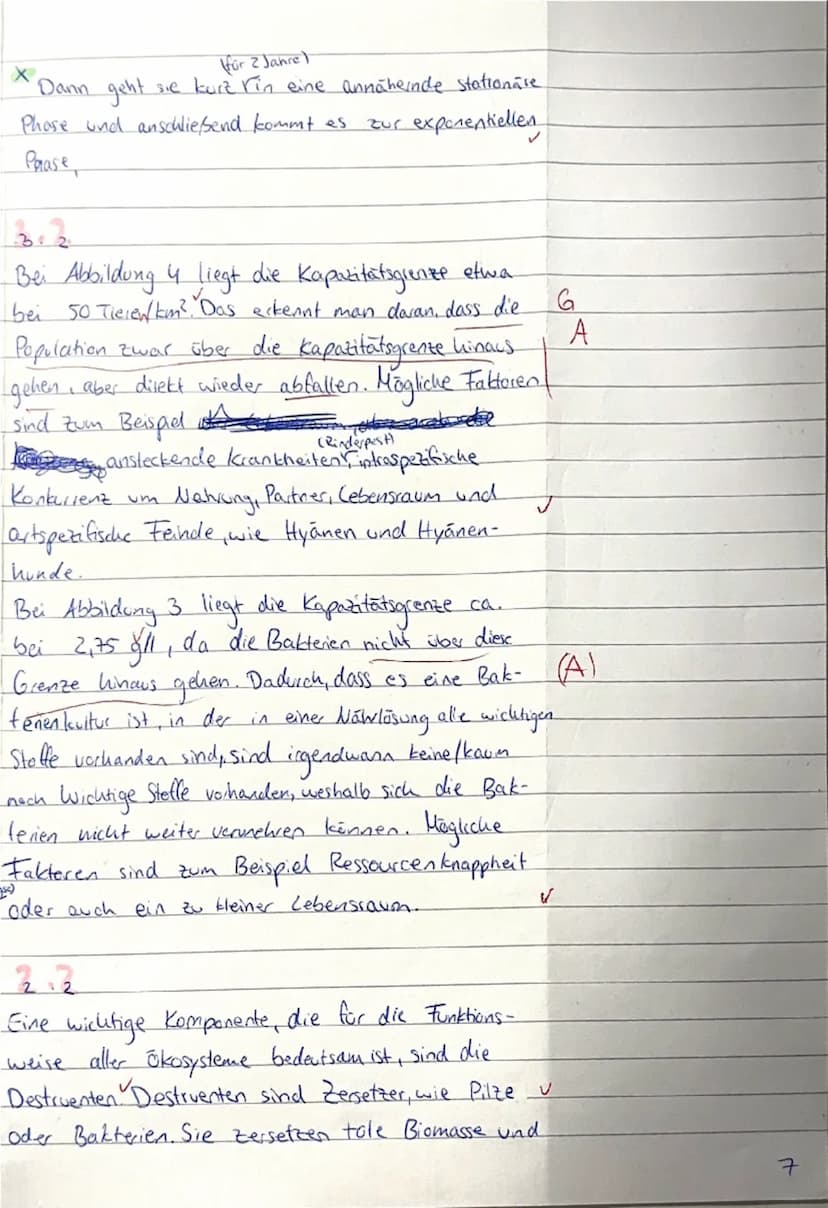 (für 2 Jahre)
x Dann geht sie kurz in eine annähernde stationäre
Phase und anschließend kommt es zur exponentiellen
Phase,
3.2
Bei Abbildung 4 liegt die Kapazitätsgrenze etwa
bei 50 Tieren/km². Das erkennt man daran, dass die G
Population zwar über die Kapazitätsgrenze hinaus A
gehen, aber direkt wieder abfallen. Mögliche Faktoren
sind zum Beispiel
(Rinderpest)
ansteckende Krankheiten, intraspezifische
Konkurrenz um Nahrung, Partner, Lebensraum und
artspezifische Feinde, wie Hyänen und Hyänen-
hunde.
Bei Abbildung 3 liegt die Kapazitätsgrenze ca.
bei 2,75 g/l, da die Bakterien nicht über diese
Grenze hinaus gehen. Dadurch, dass es eine Bak- (A)
terienkultur ist, in der in einer Nährlösung alle wichtigen
Stoffe vorhanden sind, sind irgendwann keine/kaum
noch Wichtige Stoffe vorhanden, weshalb sich die Bak-
terien nicht weiter vermehren können. Mögliche
Faktoren sind zum Beispiel Ressourcenknappheit
oder auch ein zu kleiner Lebensraum.
2.2
Eine wichtige Komponente, die für die Funktions-
weise aller Ökosysteme bedeutsam ist, sind die
Destruenten. Destruenten sind Zersetzer, wie Pilze
oder Bakterien. Sie zersetzen tote Biomasse und
7